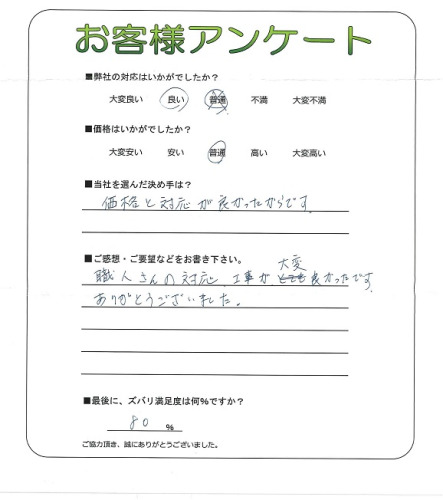 お客様アンケート
■弊社の対応はいかがでしたか？
大変良い 良い 普通 不満 大変不満
■価格はいかがでしたか？
大変安い 安い 普通 高い 大変高い
■当社を選んだ決め手は？
価格と対応が良かったからです。
■ご感想・ご要望などをお書き下さい。
大変
職人さんの対応、工事がとても良かったです。
ありがとうございました。
■最後に、ズバリ満足度は何％ですか？
80 ％
ご協力頂き、誠にありがとうございました。